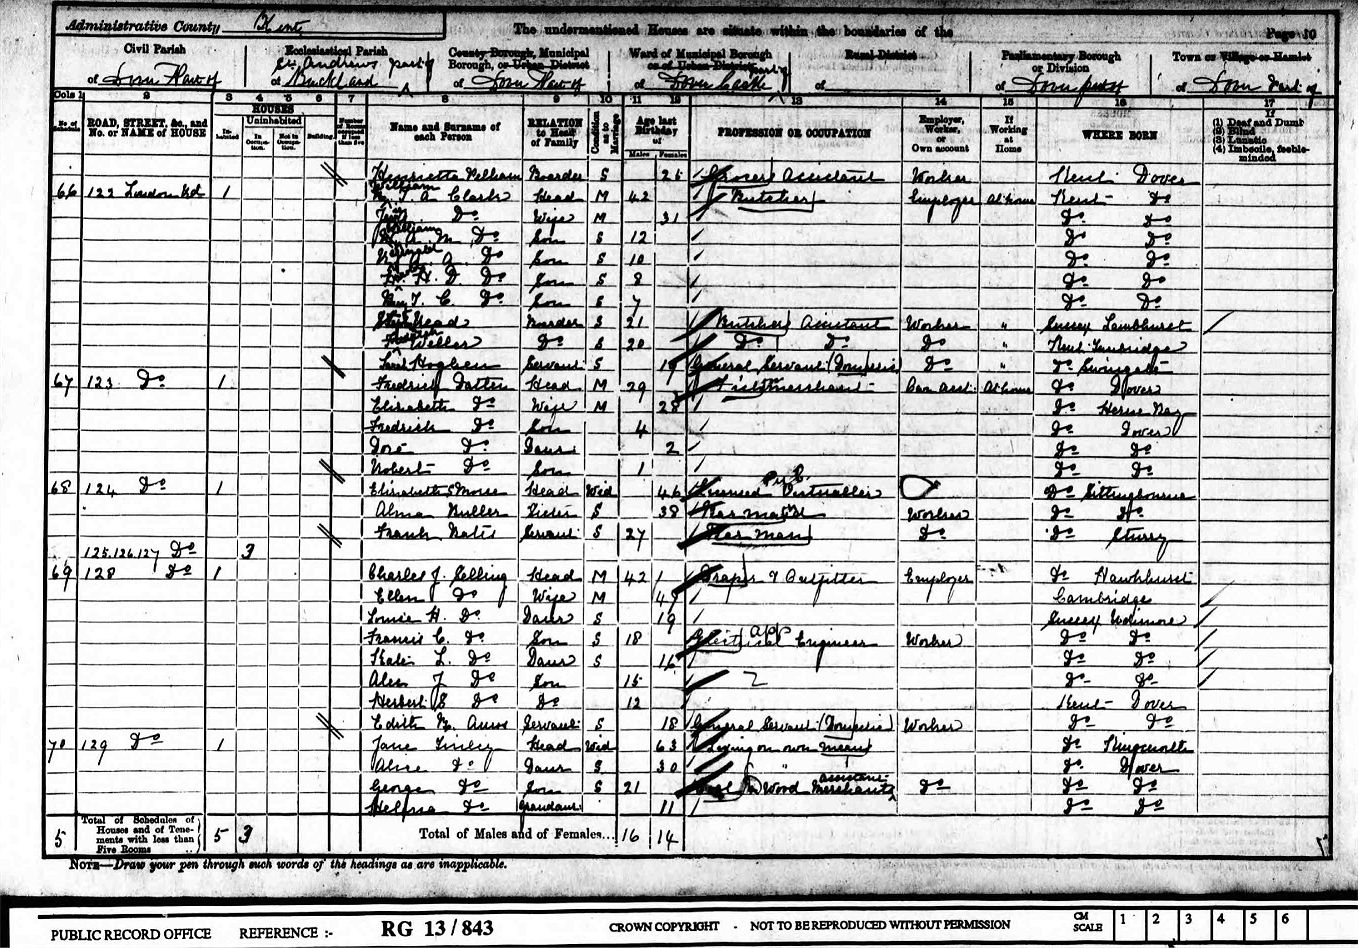 Administrative County Kent
The undermentioned Houses are situate within the boundaries of the
Page 10
Civil Parish
of Dover Part of
Ecclesiastical Parish
St. Andrews part of
of Buckland
County Borough, Municipal Borough, or Urban District
of Dover Part of
Ward of Municipal Borough or of Urban District
of Dover Castle part of
Rural District
of
Parliamentary Borough or Division
of Dover part of
Town or Village or Hamlet
of Dover Part of
Cols 1 2 3 4 5 6 7 8 9 10 11 12 13 14 15 16 17
No. of Schedule
ROAD, STREET, &c., and No. or NAME of HOUSE
HOUSES
Inhabited
Uninhabited
In Occupation.
Not in Occupation.
Building.
Number of Rooms occupied if less than five
Name and Surname of each Person
RELATION to Head of Family
Condition as to Marriage
Age last Birthday of
Males Females
PROFESSION OR OCCUPATION
Employer, Worker, or Own account
If Working at Home
WHERE BORN
If
(1) Deaf and Dumb
(2) Blind
(3) Lunatic
(4) Imbecile, feeble-minded
Henrietta Boarder S 25 Grocers Assistant Worker Kent Dover
66 122 London Rd 1 William T. A Clark Head M 42 Butcher Employer At home Kent Do
Do Wife M 31 Do Do
William A. M Do Son S 12 Do Do
A. A. Do Son S 10 Do Do
H. D. Do Son S 8 Do Do
T. C. Do Son S 7 Do Do
Head Boarder S 21 Butcher Assistant Worker " Sussex Lamberhurst
Weller Do S 20 Do Do Do " Kent Tunbridge
Hogben Servant S 19 General Servant (Domestic) Do " Do Swingate
67 123 Do 1 Fredrick Head M 29 Own acct. At home Do Dover
Elizabeth Do Wife M 28 Do Herne Bay
Fredrick Do Son 4 Do Dover
Do Daur 2 Do Do
Robert Do Son 1 Do Do
68 124 Do 1 Elizabeth S Morse Head Wid 46 Licensed Victualler P.H. Do Sittingbourne
Alma Sister S 38 Bar maid Worker Do Do
Frank Bates Servant S 27 Bar man Do Do Sturry
125.126.127 Do 3
69 128 Do 1 Charles J. Selling Head M 42 Draper & Outfitter Employer Do Hawkhurst
Ellen Do Wife M 49 Cambridge
Louise H. Do Daur S 19 Sussex
Francis C. Do Son S 18 Electrical app Engineer Worker Do Do
Kate L. Do Daur S 16 Do Do
Alex J Do Son 15 Do Do
Herbert S Do Do 12 Kent Dover
Edith M. Servant S 18 General Servant (Domestic) Worker Do Do
70 129 Do 1 Jane Head Wid 63 Living on own means Do Ringwould
Alice Do Daur S 30 " Do Dover
George Do Son S 21 Coal & Wood Merchants assistant Do Do Do
Do Grandaur 11 Do Do
5 Total of Schedules of Houses and of Tenements with less than Five Rooms 5 3 Total of Males and of Females... 16 14
NOTE—Draw your pen through such words of the headings as are inapplicable.
PUBLIC RECORD OFFICE REFERENCE :- RG 13/843 CROWN COPYRIGHT - NOT TO BE REPRODUCED WITHOUT PERMISSION CM SCALE 1 2 3 4 5 6